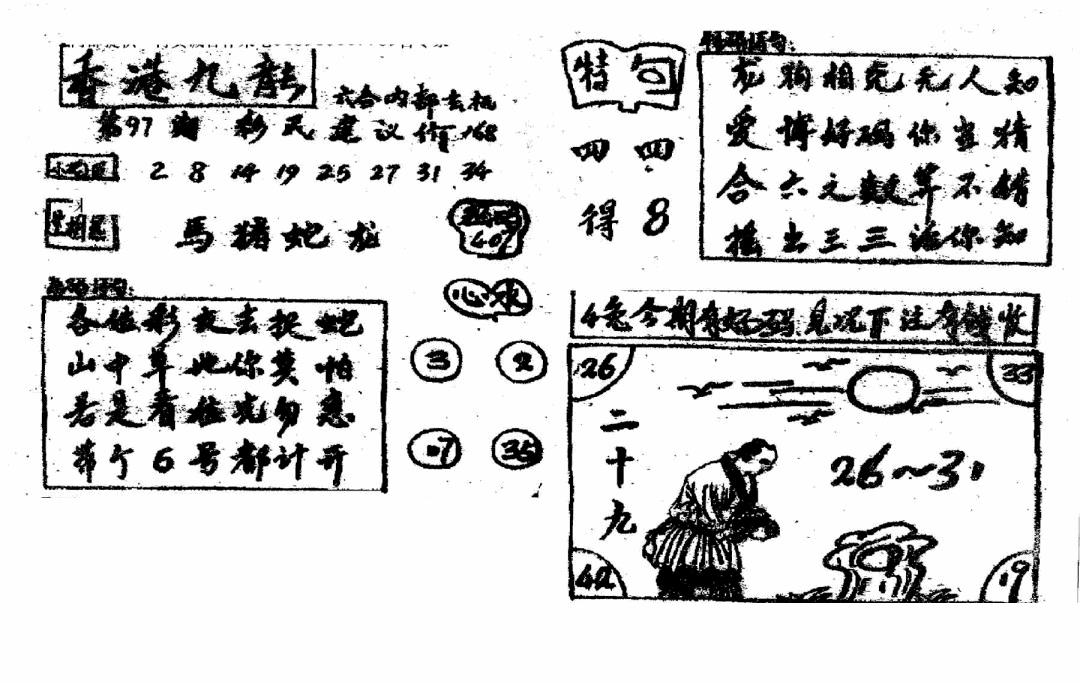 香港九龍
六合内部玄机
第97期 彩民建议价168
2 8 14 19 25 27 31 34
馬豬蛇龙
40%
心水
3 2
17 35
各位彩友去捉蛇
山中草地你莫怕
若是看位
第个6号都计开
特句
四四
得8
龙狗相克无人知
爱博好码你查猜
合六之数算不错
摇出三三话你知
今期有好码 見况下注有钱收
26 33
二十九
26~31
42 19